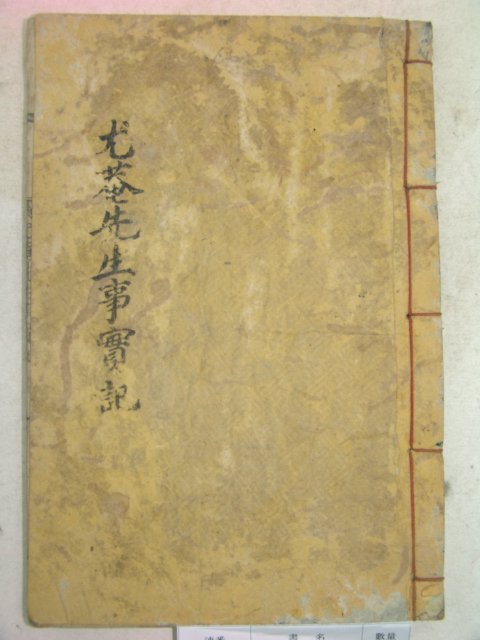 尤菴先生事實記
書名
數量